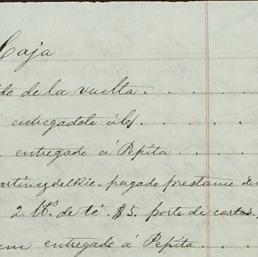 Caja
de la vuelta
entregadole á
entregado á Pepita
pagado prestamo
2 lbs de té. $5. porte de cartas
entregado á Pepita